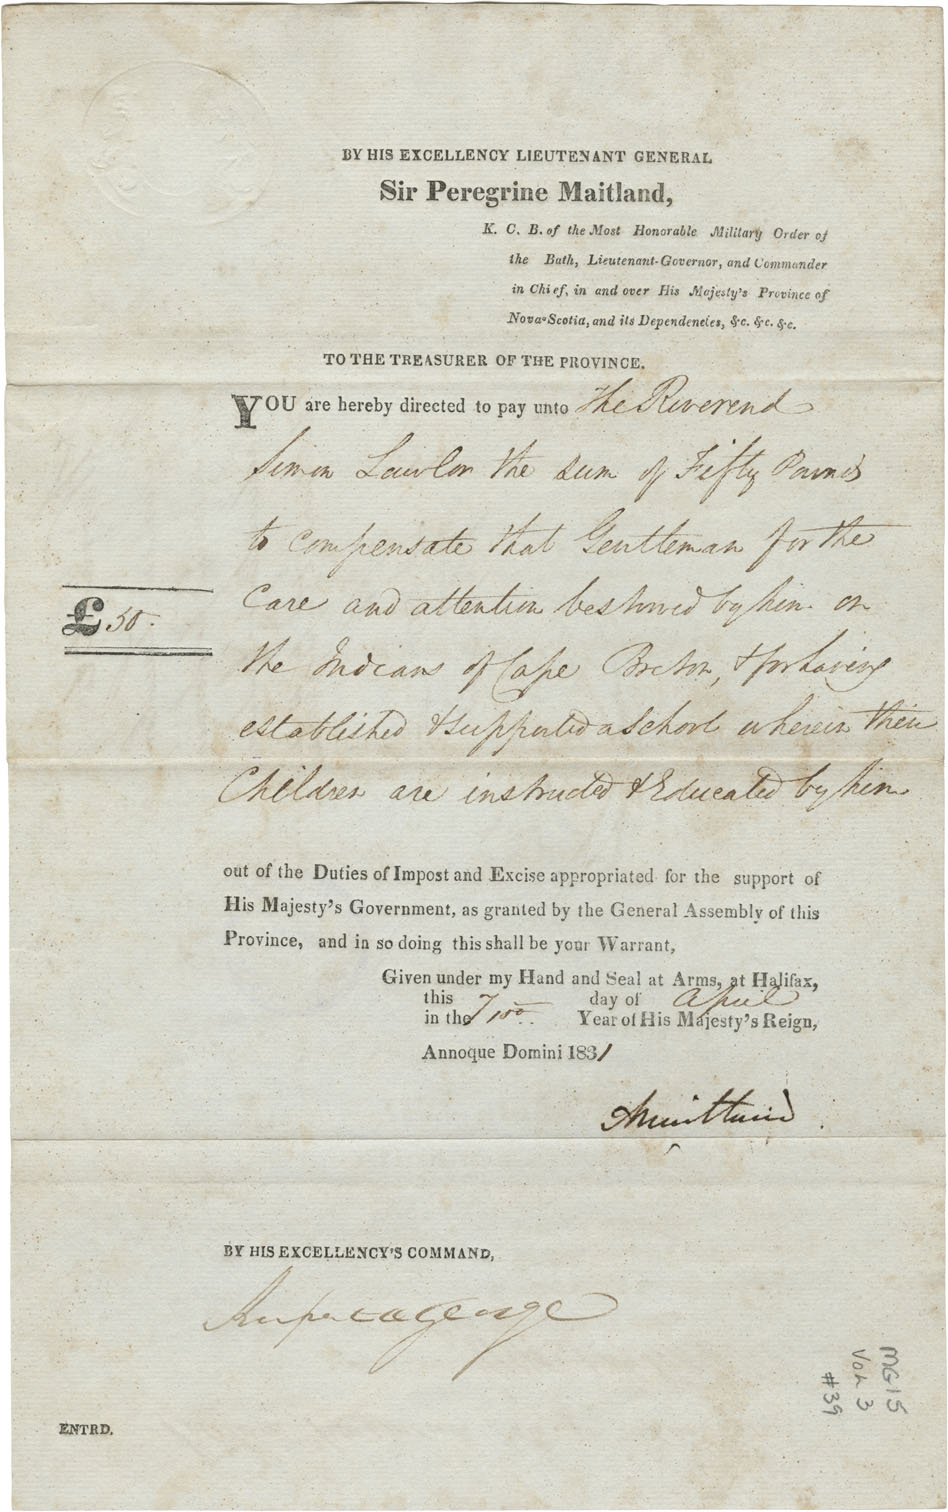 BY HIS EXCELLENCY LIEUTENANT GENERAL
Sir Peregrine Maitland,
K. C. B. of the Most Honorable Military Order of
the Bath, Lieutenant-Governor, and Commander
in Chief, in and over His Majesty's Province of
Nova-Scotia, and its Dependencies, &c. &c. &c.
TO THE TREASURER OF THE PROVINCE.
YOU are hereby directed to pay unto The Reverend
Simon Lawlor the sum of Fifty Pounds
to compensate that Gentleman for the
£ 50.
Care and attention bestowed by him on
the Indians of Cape Breton, & for having
established & supported a School wherein their
Children are instructed & Educated by him
out of the Duties of Impost and Excise appropriated for the support of
His Majesty's Government, as granted by the General Assembly of this
Province, and in so doing this shall be your Warrant,
Given under my Hand and Seal at Arms, at Halifax,
this day of April
in the Year of His Majesty's Reign,
Annoque Domini 1831
PMaitland
BY HIS EXCELLENCY'S COMMAND,
Rupert D George
ENTRD.
MG15
Vol 3
#39